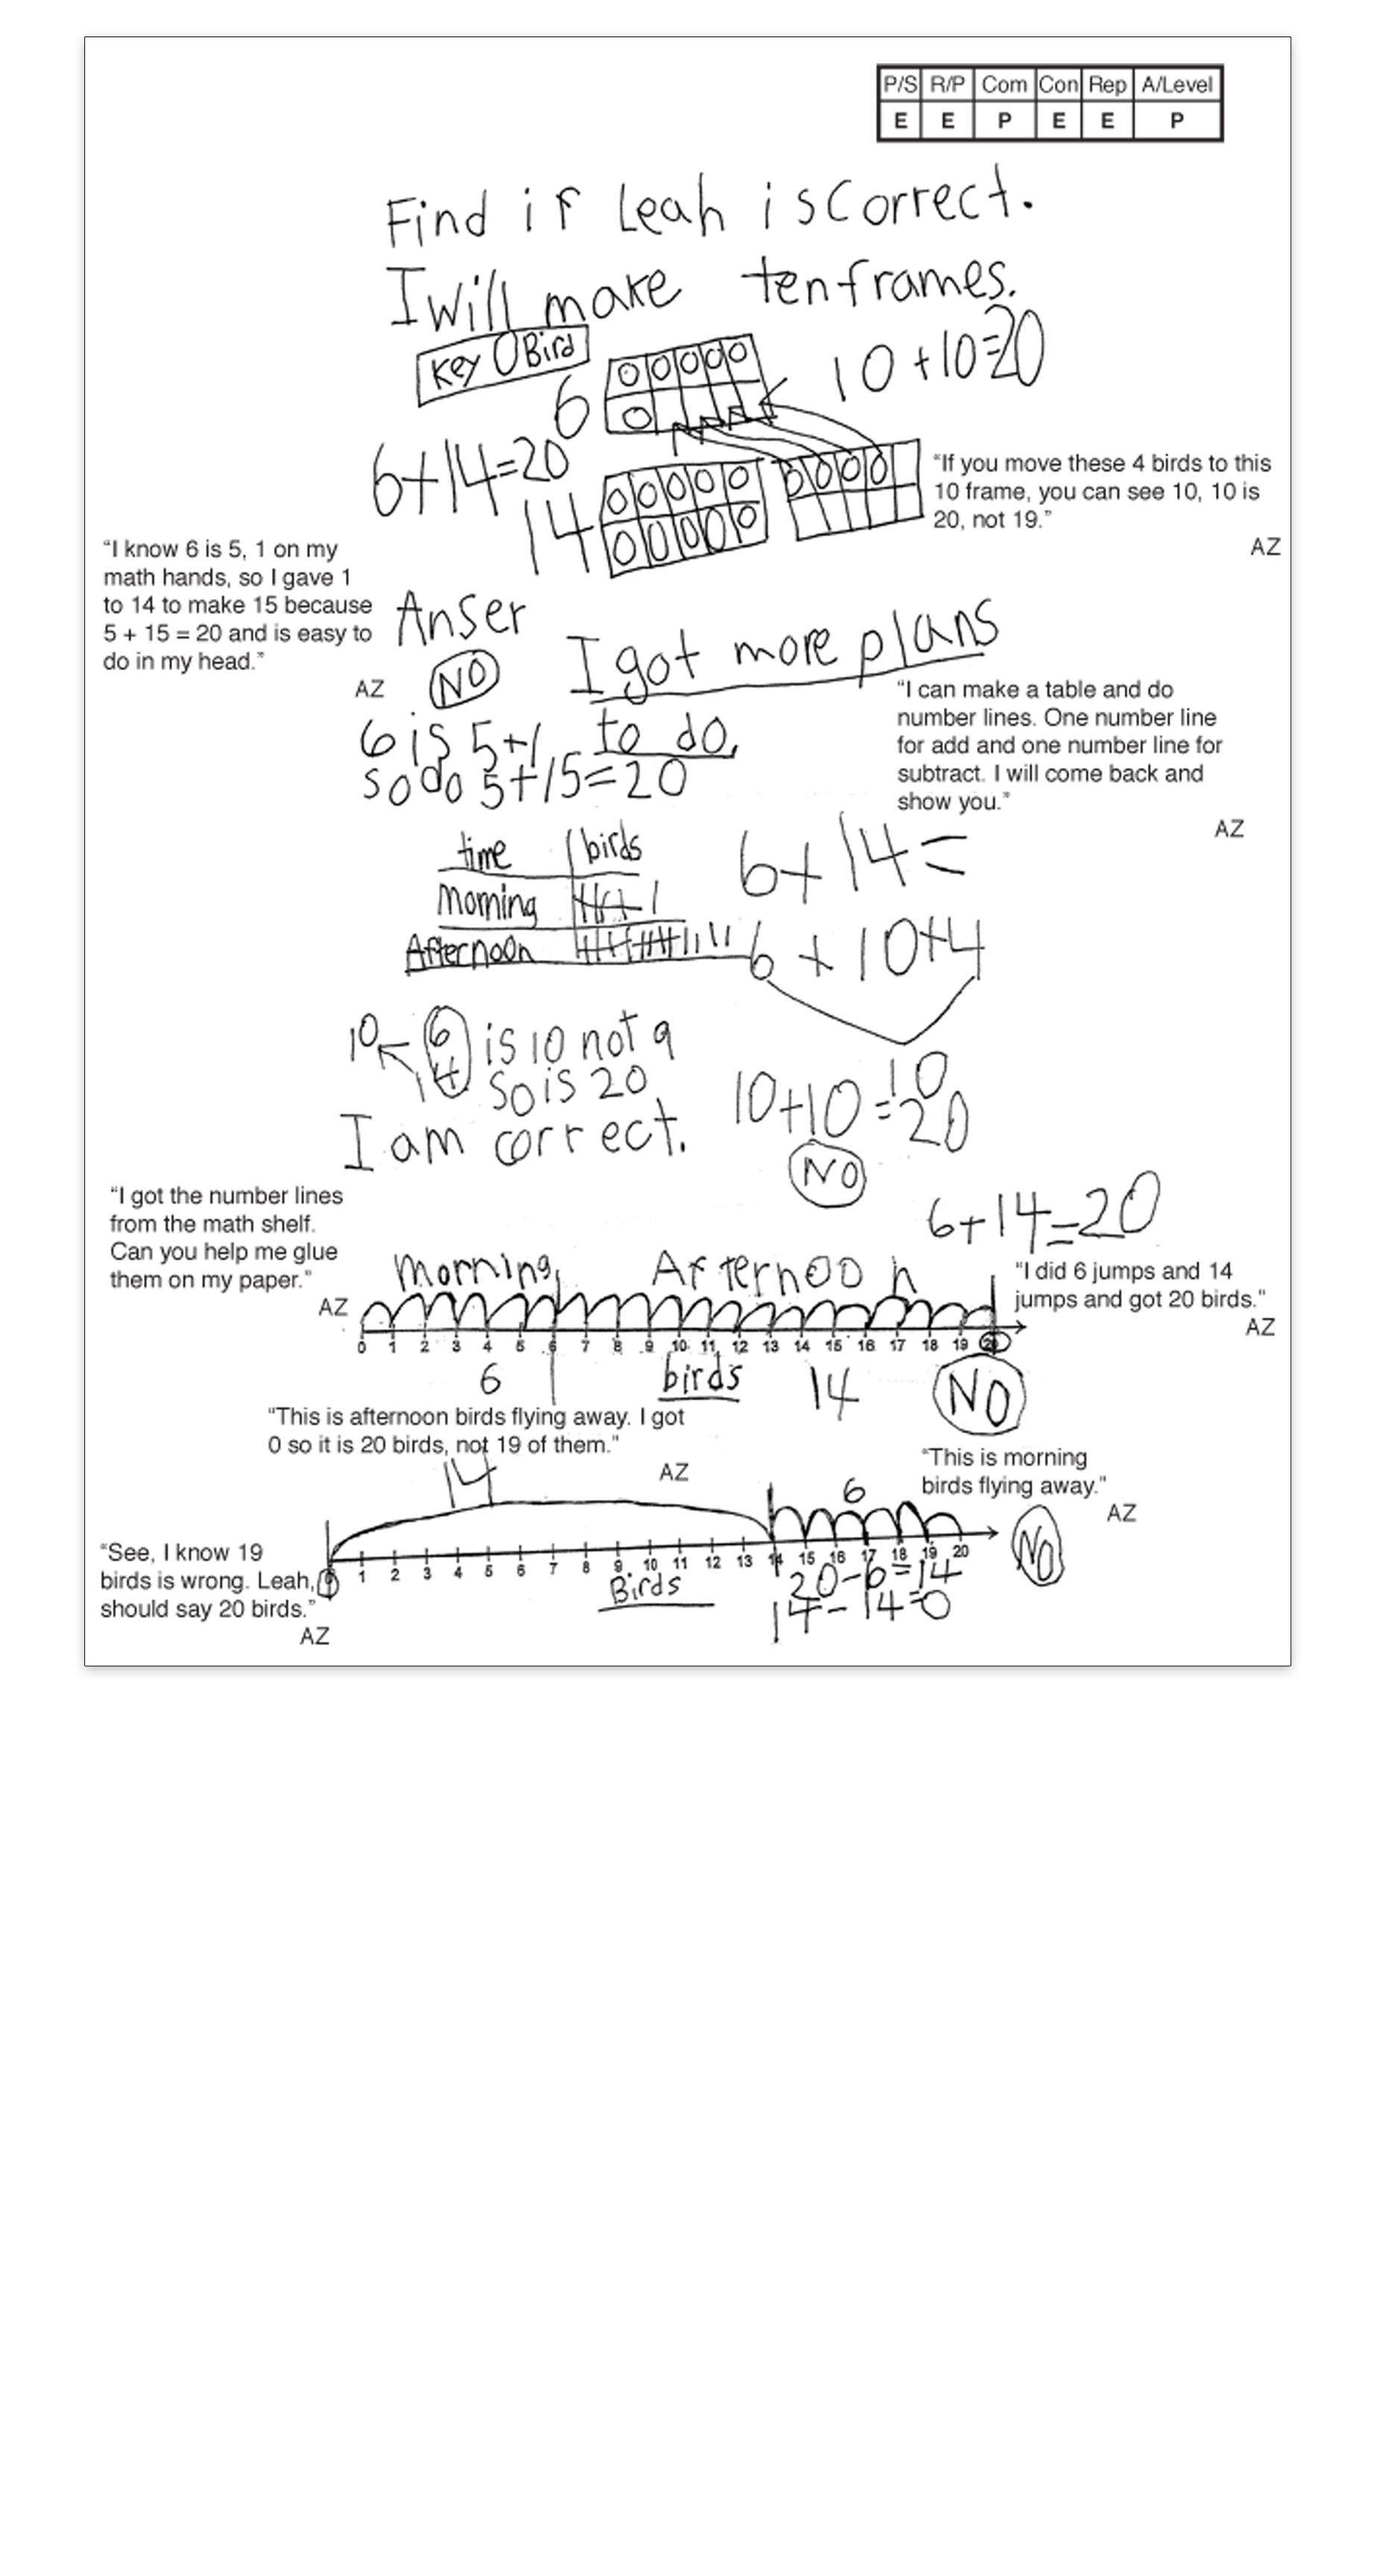 P/S R/P Com Con Rep A/Level
E E P E E P
Find if Leah is correct.
I will make ten frames.
Key O Bird
6
10+10=20
6+14=20
14
"If you move these 4 birds to this
10 frame, you can see 10, 10 is
20, not 19."
AZ
"I know 6 is 5, 1 on my
math hands, so I gave 1
to 14 to make 15 because
5 + 15 = 20 and is easy to
do in my head."
AZ
Anser
NO
I got more plans
to do.
6 is 5+1
so do 5+15=20
"I can make a table and do
number lines. One number line
for add and one number line for
subtract. I will come back and
show you."
AZ
time birds
Morning
Afternoon
6+14=
6+10+4
10 6 is 10 not 9
14 so is 20
I am correct.
10+10=10
=20
NO
"I got the number lines
from the math shelf.
Can you help me glue
them on my paper."
AZ
6+14=20
Morning Afternoon
"I did 6 jumps and 14
jumps and got 20 birds."
AZ
0 1 2 3 4 5 6 7 8 9 10 11 12 13 14 15 16 17 18 19 20
6 birds 14 NO
"This is afternoon birds flying away. I got
0 so it is 20 birds, not 19 of them."
AZ
14
"This is morning
birds flying away."
AZ
6
NO
0 1 2 3 4 5 6 7 8 9 10 11 12 13 14 15 16 17 18 19 20
Birds
20-6=14
14-14=0
"See, I know 19
birds is wrong. Leah,
should say 20 birds."
AZ